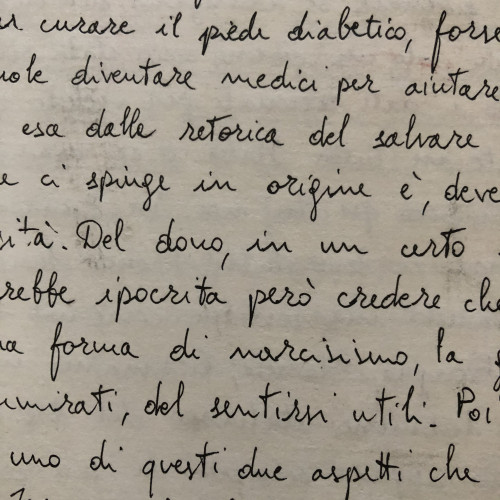 curare il piede diabetico, forse
vuole diventare medici per aiutare
esa dalla retorica del salvare
e ci spinge in origine è, deve
sità. Del dono, in un certo
rebbe ipocrita però credere che
na forma di narcisismo, la
mmirati, del sentirsi utili. Poi
uno di questi due aspetti che